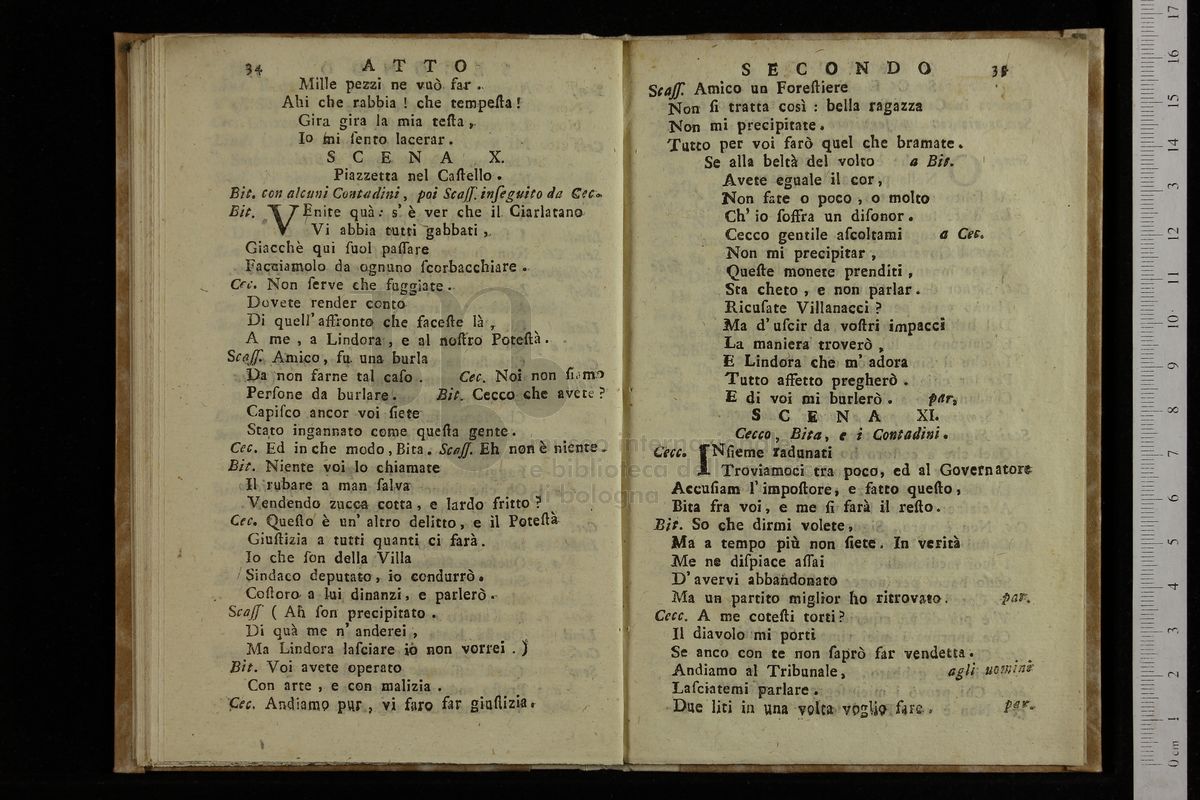 34 ATTO
Mille pezzi ne vuò far .
Ahi che rabbia ! che tempeſta !
Gira gira la mia teſta ,
Io mi ſento lacerar .
SCENA X.
Piazzetta nel Caſtello .
Bit. con alcuni Contadini , poi Scaff. inſeguito da Cec.
Bit. VEnite quà : s' è ver che il Ciarlatano
Vi abbia tutti gabbati ,
Giacchè qui ſuol paſſare
Facciamolo da ognuno ſcorbacchiare .
Cec. Non ſerve che fuggiate .
Dovete render conto
Di quell' affronto che faceſte là ,
A me , a Lindora , e al noſtro Poteſtà .
Scaff. Amico , fu una burla
Da non farne tal caſo . Cec. Noi non ſiamo
Perſone da burlare . Bit. Cecco che avete ?
Capiſco ancor voi ſiete
Stato ingannato come queſta gente .
Cec. Ed in che modo , Bita . Scaff. Eh non è niente .
Bit. Niente voi lo chiamate
Il rubare a man ſalva
Vendendo zucca cotta , e lardo fritto ?
Cec. Queſto è un' altro delitto , e il Poteſtà
Giuſtizia a tutti quanti ci farà .
Io che ſon della Villa
Sindaco deputato , io condurrò .
Coſtoro a lui dinanzi , e parlerò .
Scaff ( Ah ſon precipitato .
Di quà me n' anderei ,
Ma Lindora laſciare io non vorrei . )
Bit. Voi avete operato
Con arte , e con malizia .
Cec. Andiamo pur , vi faro far giuſtizia .
SECONDO 35
Scaff. Amico un Foreſtiere
Non ſi tratta così : bella ragazza
Non mi precipitate .
Tutto per voi farò quel che bramate .
Se alla beltà del volto a Bit.
Avete eguale il cor ,
Non fate o poco , o molto
Ch' io ſoffra un diſonor .
Cecco gentile aſcoltami a Cec.
Non mi precipitar ,
Queſte monete prenditi ,
Sta cheto , e non parlar .
Ricuſate Villanacci ?
Ma d' uſcir da voſtri impacci
La maniera troverò ,
E Lindora che m' adora
Tutto affetto pregherò .
E di voi mi burlerò . par.
SCENA XI.
Cecco , Bita , e i Contadini .
Cecc. INſieme radunati
Troviamoci tra poco , ed al Governatore
Accuſiam l' impoſtore , e fatto queſto ,
Bita fra voi , e me ſi farà il reſto .
Bit. So che dirmi volete ,
Ma a tempo più non ſiete . In verità
Me ne diſpiace aſſai
D' avervi abbandonato
Ma un partito miglior ho ritrovato . par.
Cecc. A me coteſti torti ?
Il diavolo mi porti
Se anco con te non ſaprò far vendetta .
Andiamo al Tribunale , agli uomini
Laſciatemi parlare .
Due liti in una volta voglio fare . par.